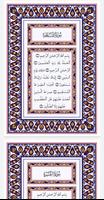 سُورَةُ الفَاتِحَةِ
بِسْمِ ٱللَّهِ ٱلرَّحْمَٰنِ ٱلرَّحِيمِ ١
ٱلْحَمْدُ لِلَّهِ رَبِّ ٱلْعَٰلَمِينَ ٢
ٱلرَّحْمَٰنِ ٱلرَّحِيمِ ٣ مَٰلِكِ يَوْمِ ٱلدِّينِ ٤
إِيَّاكَ نَعْبُدُ وَإِيَّاكَ نَسْتَعِينُ ٥ ٱهْدِنَا
ٱلصِّرَٰطَ ٱلْمُسْتَقِيمَ ٦ صِرَٰطَ ٱلَّذِينَ أَنْعَمْتَ
عَلَيْهِمْ غَيْرِ ٱلْمَغْضُوبِ عَلَيْهِمْ
وَلَا ٱلضَّآلِّينَ ٧
سُورَةُ البَقَرَةِ
بِسْمِ ٱللَّهِ ٱلرَّحْمَٰنِ ٱلرَّحِيمِ